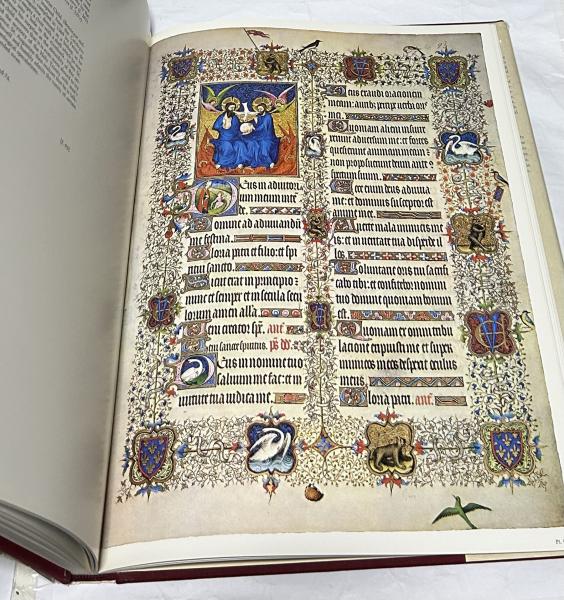 Deus in adiutori
um meum inte
de.
Domine ad adiuuandū
me festina.
Gloria p̄ri et filio: et spi
ritui sancto.
Sicut erat in principio ⁊
nunc et semper et in secula secu
lorum amen alla
Ueni creator sp̄c. anr̄.
Ueni sancte spiritus. ps̄
Deus in nomine tuo
saluum me fac: et in
uirtute tua iudica me.
Deus exaudi orationem
meam: auribꝫ percipe uerba oris
mei.
Quoniam alieni insurre
xerunt aduersum me: et fortes
quesierunt animam meam: ⁊
non proposuerunt deum ante c̄
spectum suum.
Ecce enim deus adiuua
me: et dominus susceptor est
anime mee.
Auerte mala inimicis me
is: et in ueritate tua disperde il
los.
Uoluntarie sacrifi
cabo tibi: et confitebor nomini
tuo domine quoniam bonum
est.
Quoniam ex omni tribu
latione eripuisti me et super
inimicos meos despexit oculus
meus.
Gloria p̄ri. anr̄.
Pl.